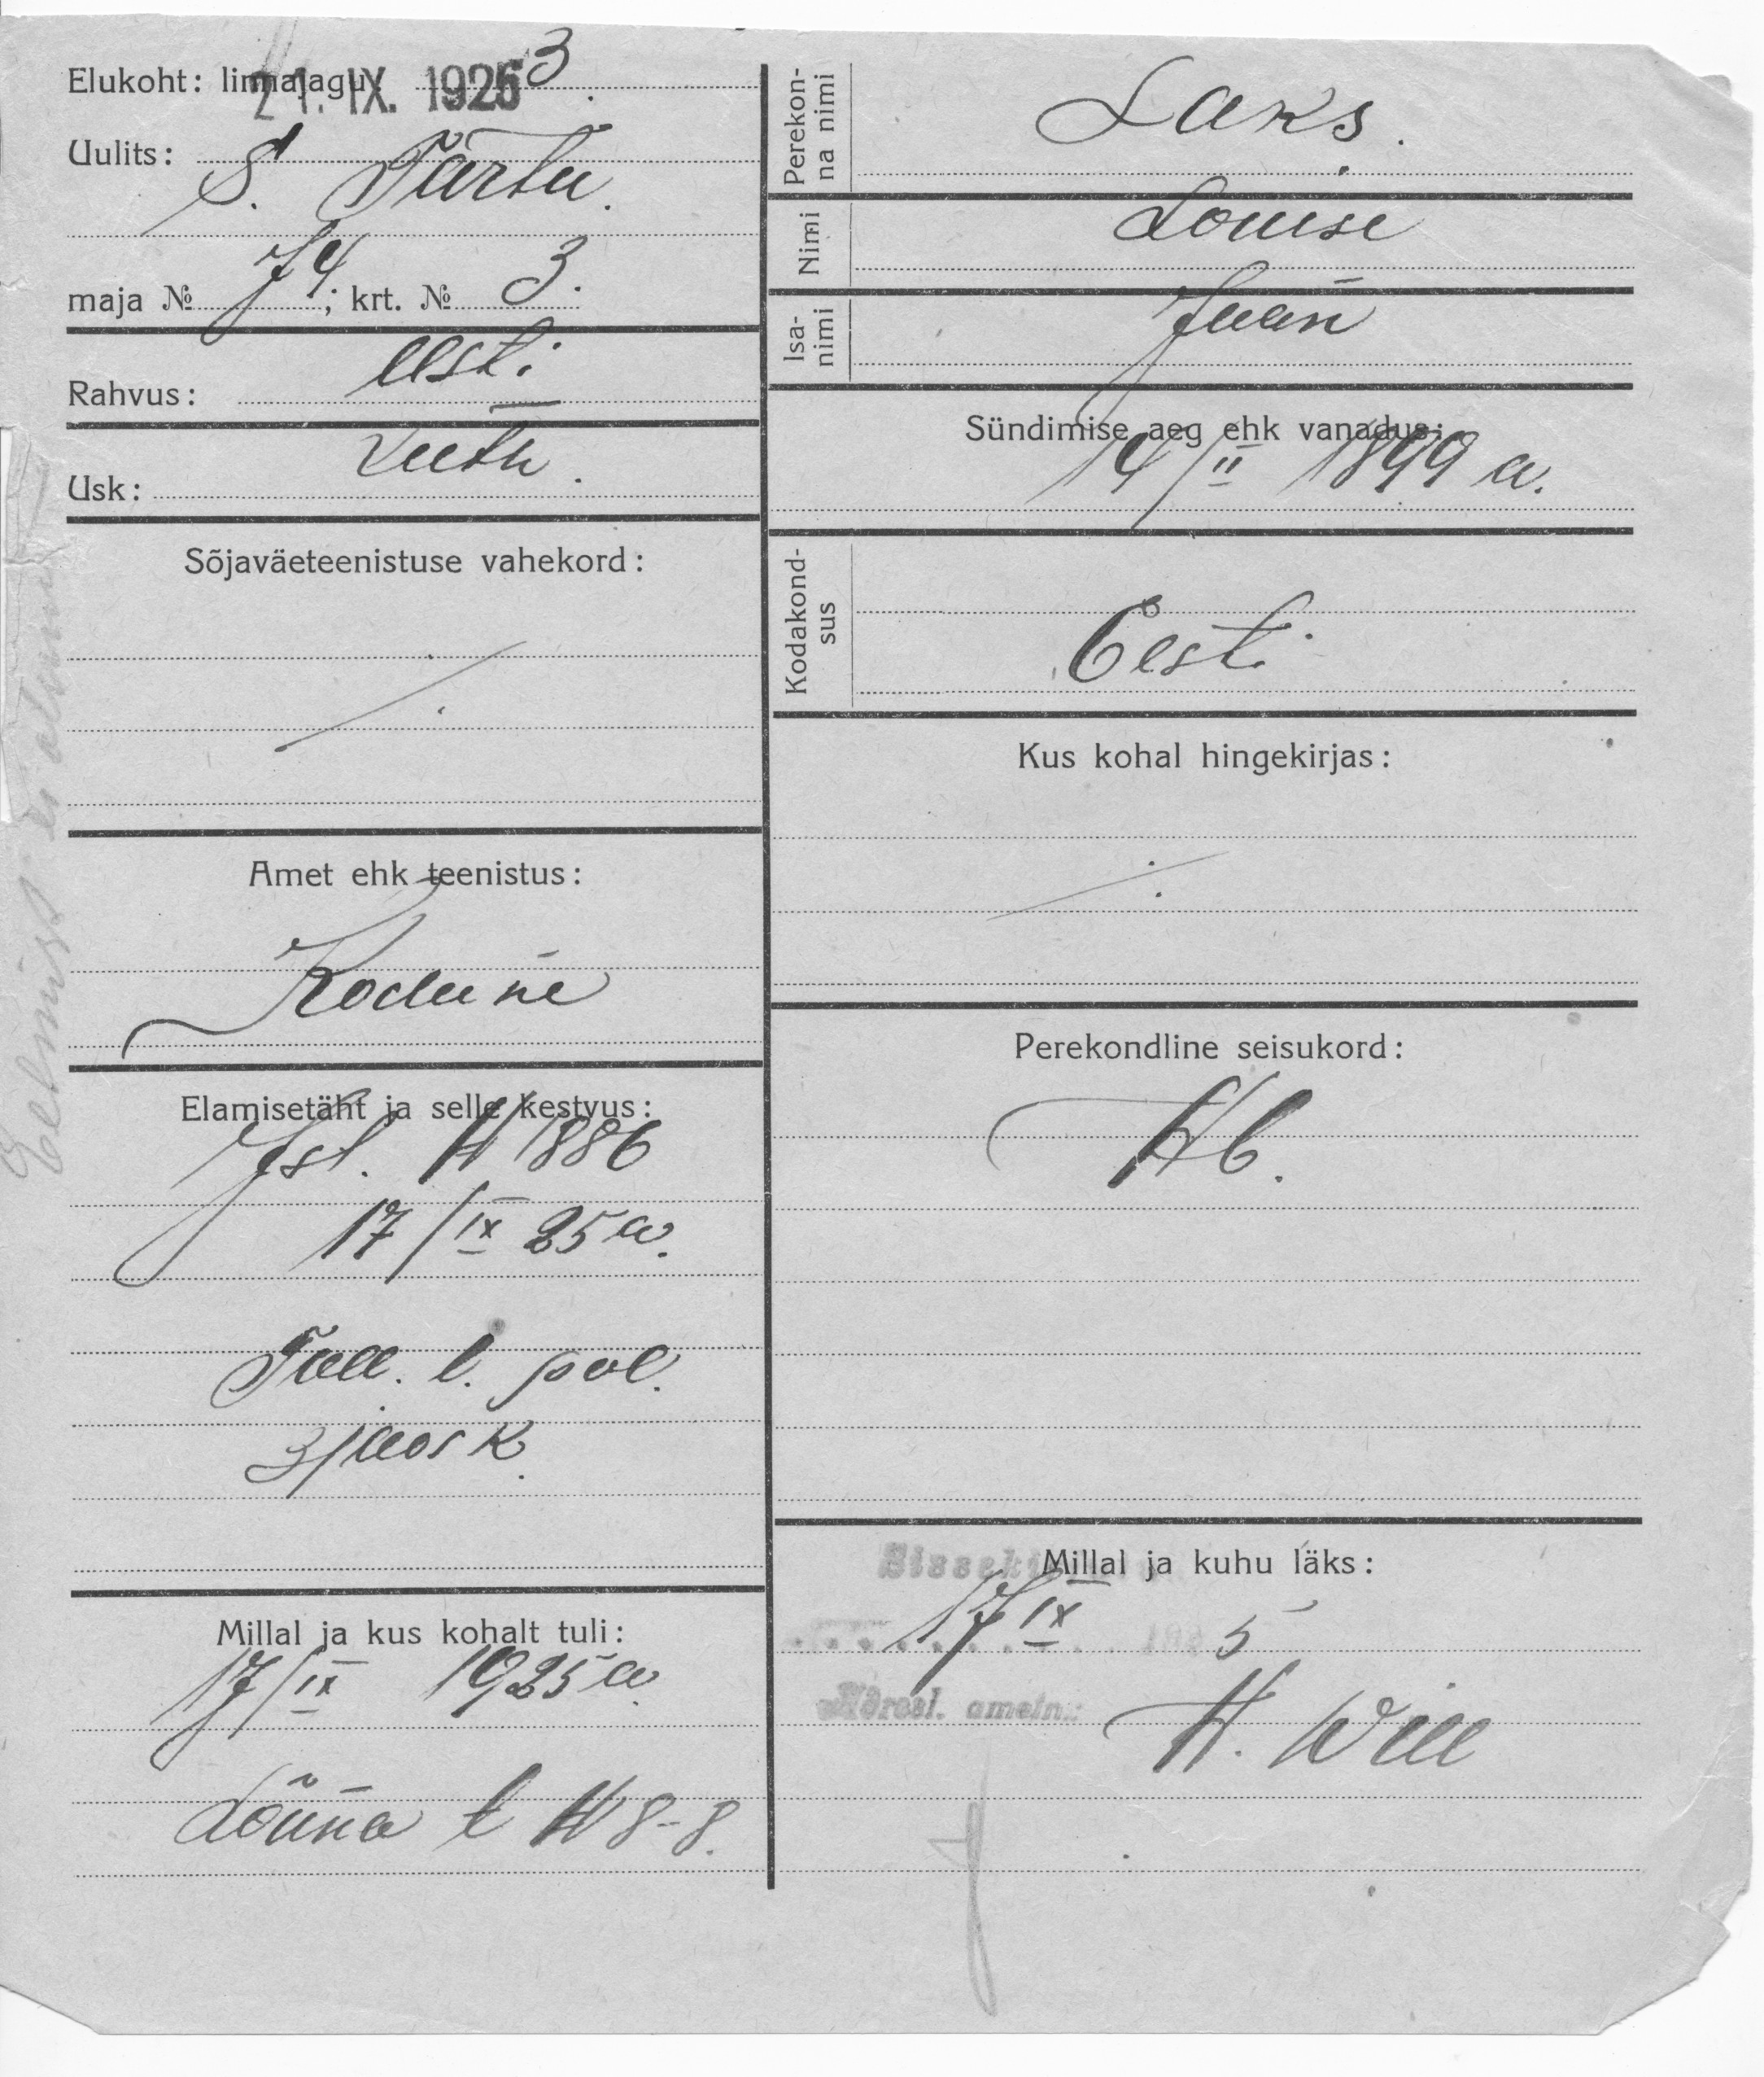 Elukoht: linnajagu 3.
21. IX. 1925
Uulits: S. Tartu.
maja № 74; krt. № 3.
Rahvus: eesti
Usk: Luth.
Sõjaväeteenistuse vahekord:
Amet ehk teenistus:
Kodune
Elamisetäht ja selle kestvus:
Isl. № 1886
17/IX 25 a.
Tall. l. pol.
3 jaosk.
Millal ja kus kohalt tuli:
17/IX 1925 a
Lõuna t № 8-8.
Perekonna nimi
Laks.
Nimi
Louise
Isanimi
Jaan
Sündimise aeg ehk vanadus:
14/II 1899 a.
Kodakondsus
Eesti
Kus kohal hingekirjas:
Perekondline seisukord:
Ab.
Millal ja kuhu läks:
17 IX 5
Adresl. ametn.:
H. Will